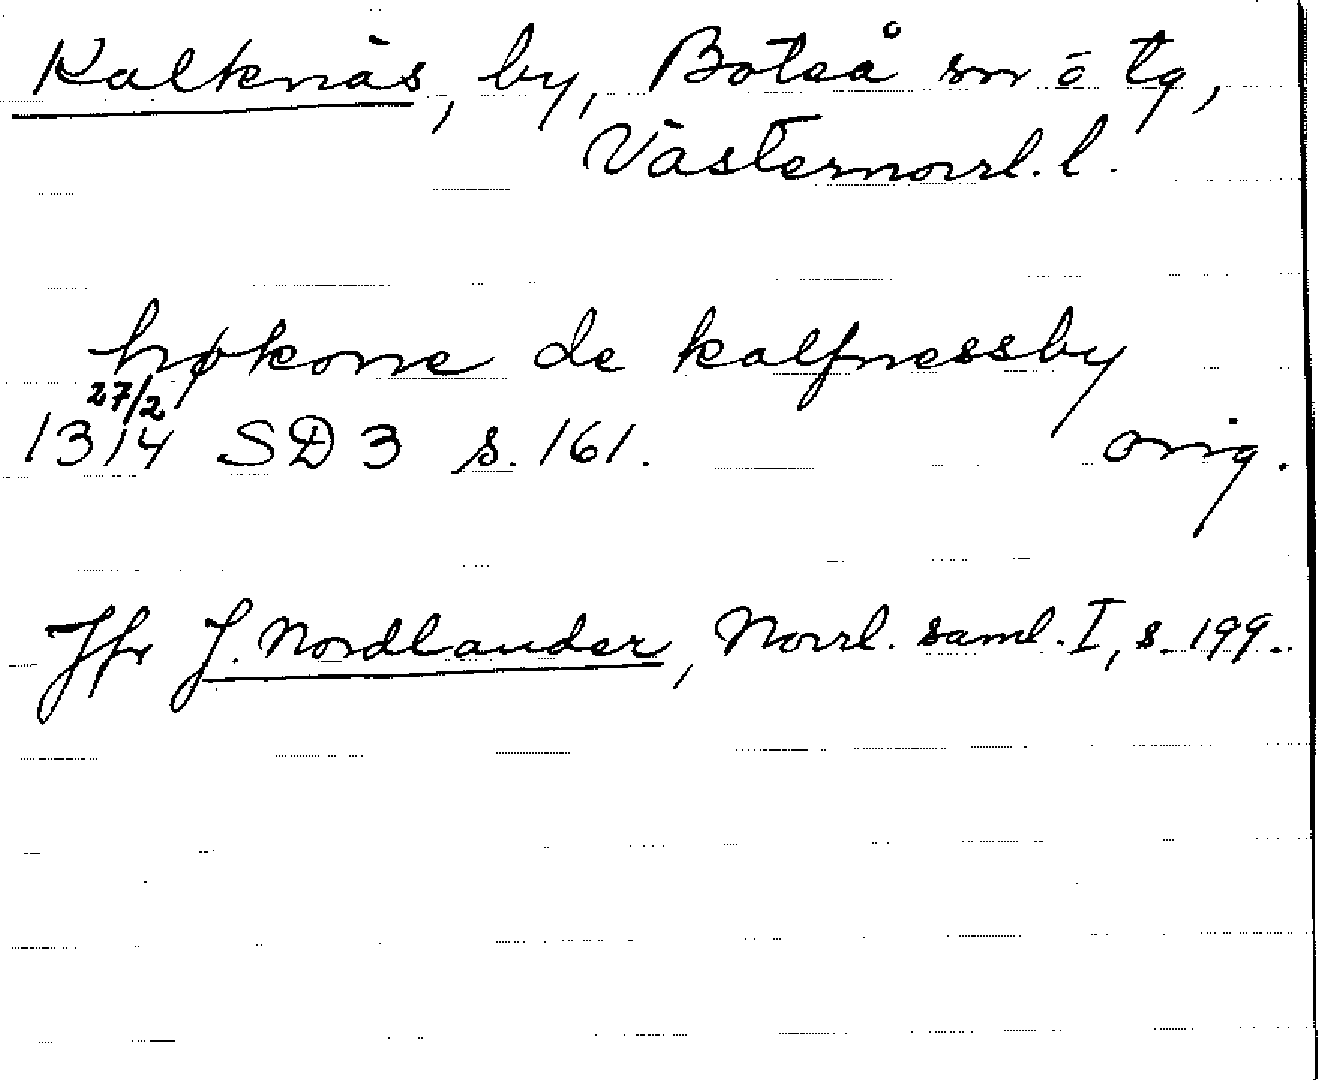 Kalknäs, by, Boteå sn ō tg,
Västernorrl. l.
høkone de kalfnessby
27/2
1314 SD 3 s. 161. orig.
Jfr J. Nordlander, Norrl. saml. I, s. 199.